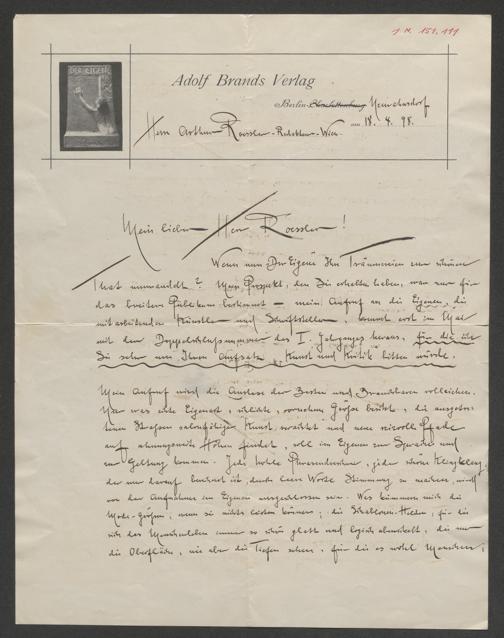 J. N. 159.199
DER EIGENE
Adolf Brands Verlag
Berlin-Charlottenburg Neurahnsdorf
am 18. 4. 98.
Herrn Arthur Roessler - Redakteur - Wien.
Mein lieber Herr Roessler!
Wenn nun Der Eigene Ihr Träumereien zur schönen
That umwandelt? Mein Prospekt, den Sie erhalten haben, war nur für
das breitere Publikum bestimmt – mein Aufruf an die Eigenen, die
mitarbeitenden Künstler und Schriftsteller, kommt erst im Mai
mit dem Doppelschlussnummer des I. Jahrganges heraus, für die ich
Sie sehr um Ihren Aufsatz Kunst und Kritik bitten würde.
Mein Aufruf wird die Auslese der Besten und Brauchbaren vollziehen.
Nur was echte Eigenart, schlichte, vornehme Größe besitzt, die ausgetre-
tenen Strassen salonfähiger Kunst verachtet und neue reizvolle Pfade
auf ahnungsweite Höhen findet, soll im Eigenen zur Sprache und
zur Geltung kommen. Jede hohle Phrasendrescherei, jeder schöne Klingklang,
der nur darauf bedacht ist, durch leere Worte Stimmung zu machen, wird
von der Aufnahme im Eigenen ausgeschlossen sein. Was kümmern mich die
Mode-Größen, wenn sie nichts leisten können; die Schablonen-Helden, für die
sich das Menschenleben immer so schön glatt und logisch abwickelt, die nur
die Oberfläche, nie aber die Tiefen sehen, für die es wohl Menschen,